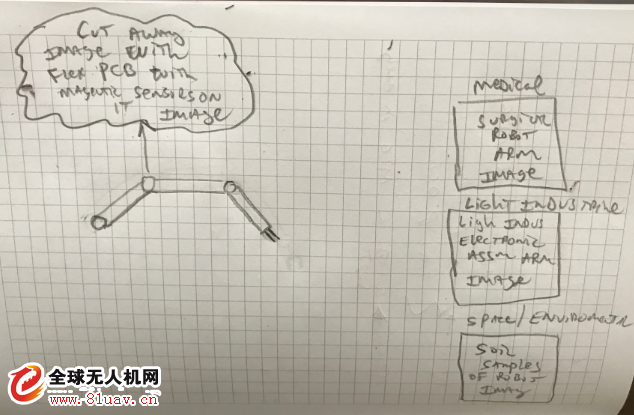 CUT AWAY
IMAGE WITH
FLEX PCB WITH
MAGNETIC SENSORS ON
IT IMAGE
MEDICAL
ROBOT
ARM
IMAGE
LIGHT INDUSTRIAL
LIGH INDUS
ELECTRONIC
ASSM ARM
IMAGE
SPACE/ENVIROMENTAL
SOIL
SAMPLES
OF ROBOT
IMAG
全球无人机网
www.81uav.cn